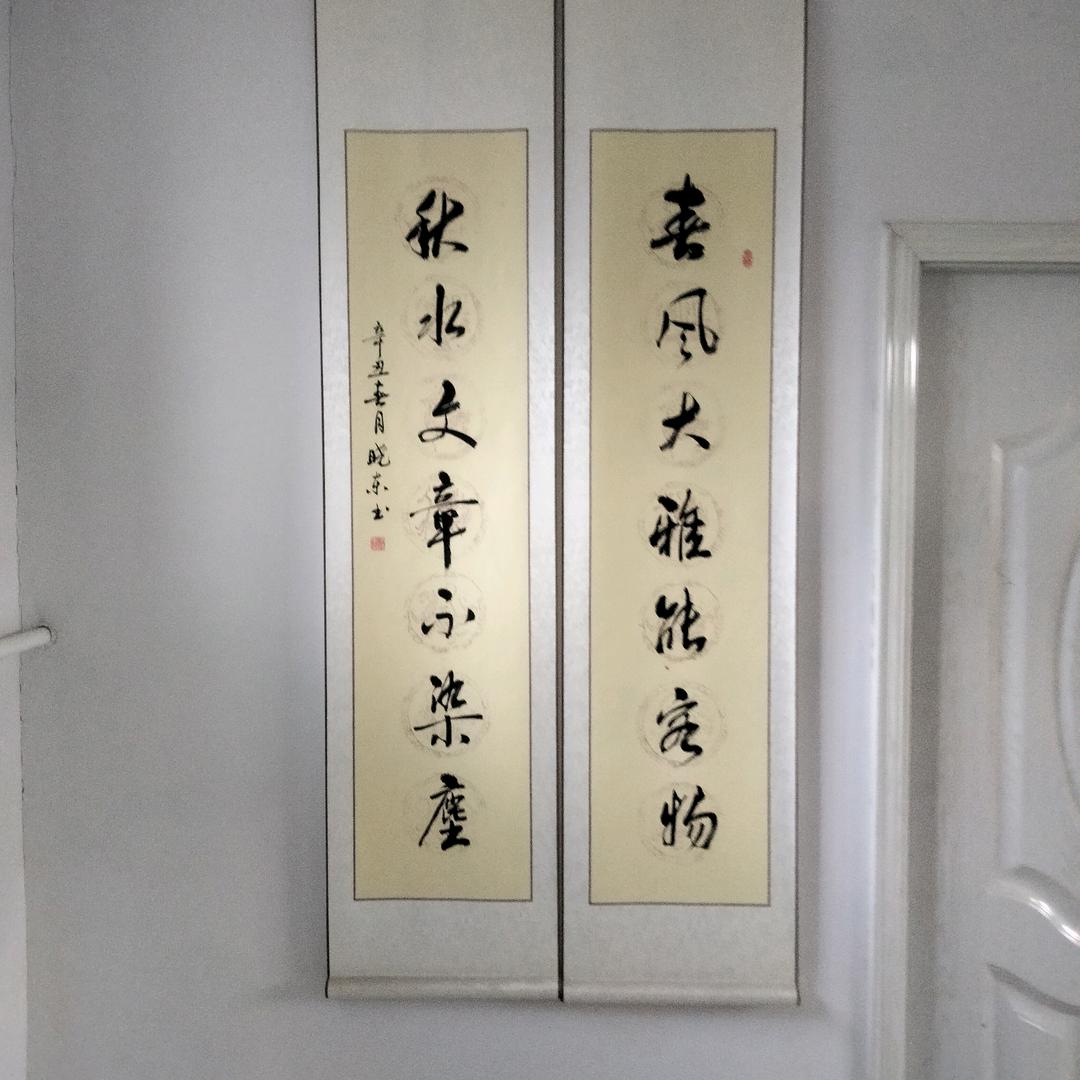 春风大雅能容物
秋水文章不染塵
辛丑春月晓东书